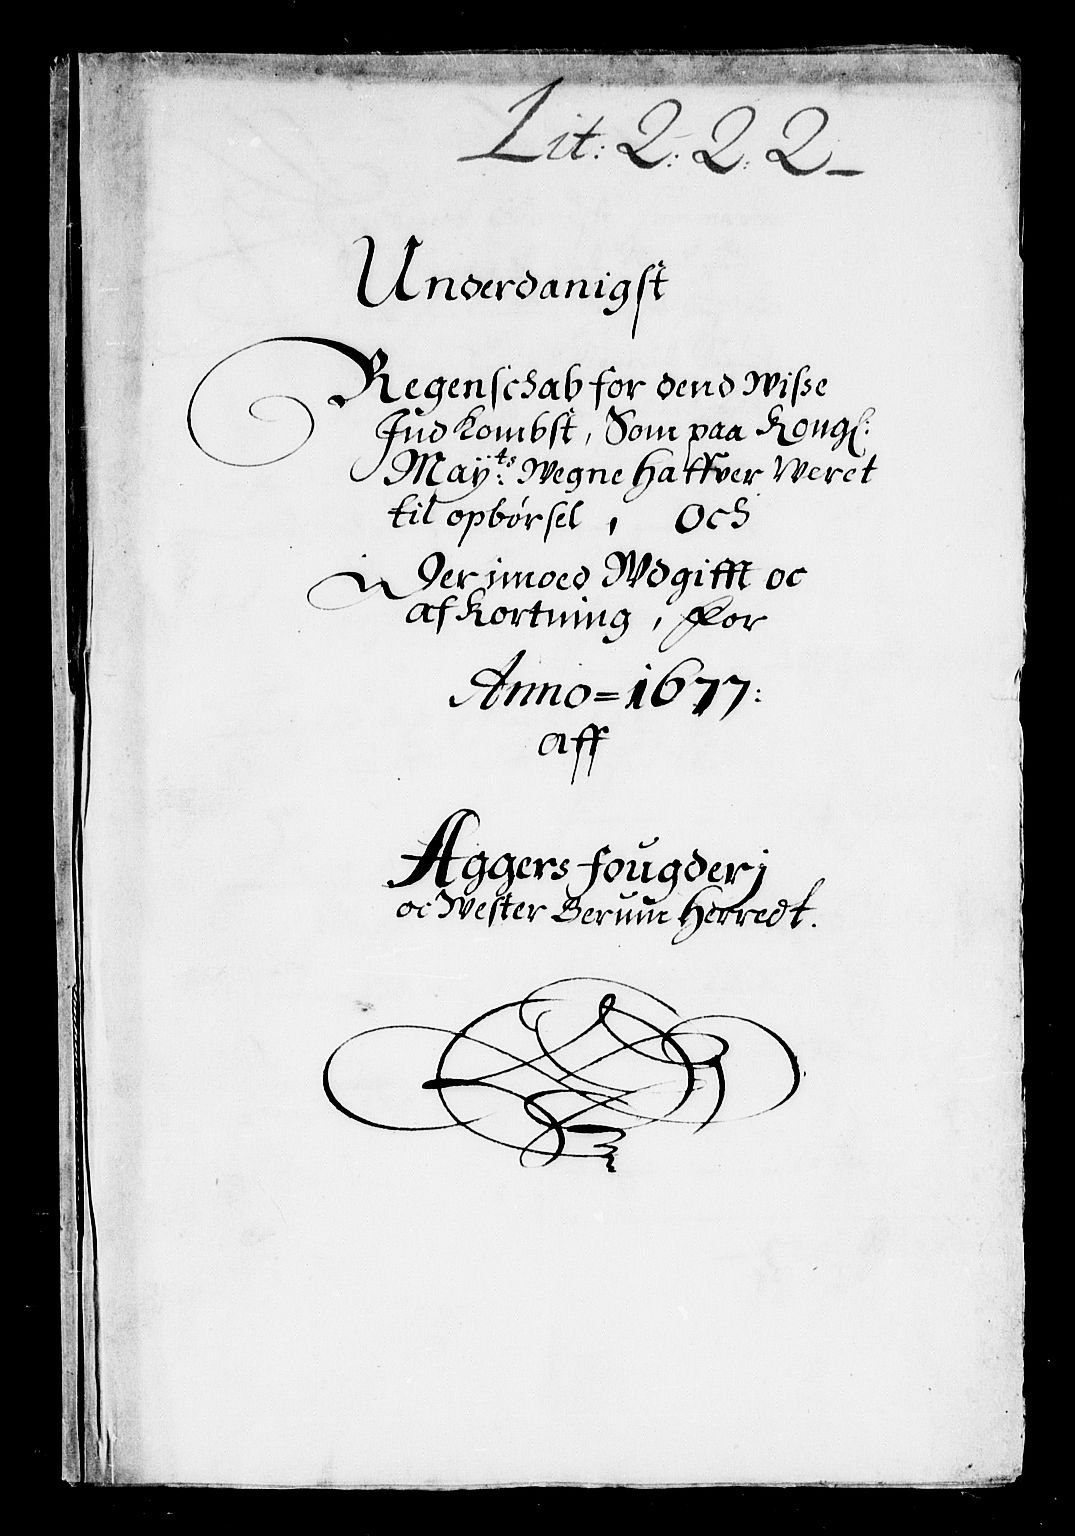 Lit: 2: 2: 2
Underdanigst
Regenschab for dend Wisse
Ind kombst, Som paa Kongl:
Maÿ:ts Wegne haffver Weret
til opbørsel, Och
Der imoed Wdgifft oc
afkortning, ffor
Anno = 1677:
aff
Aggers fougderj
oc Wester Berum Herredt.